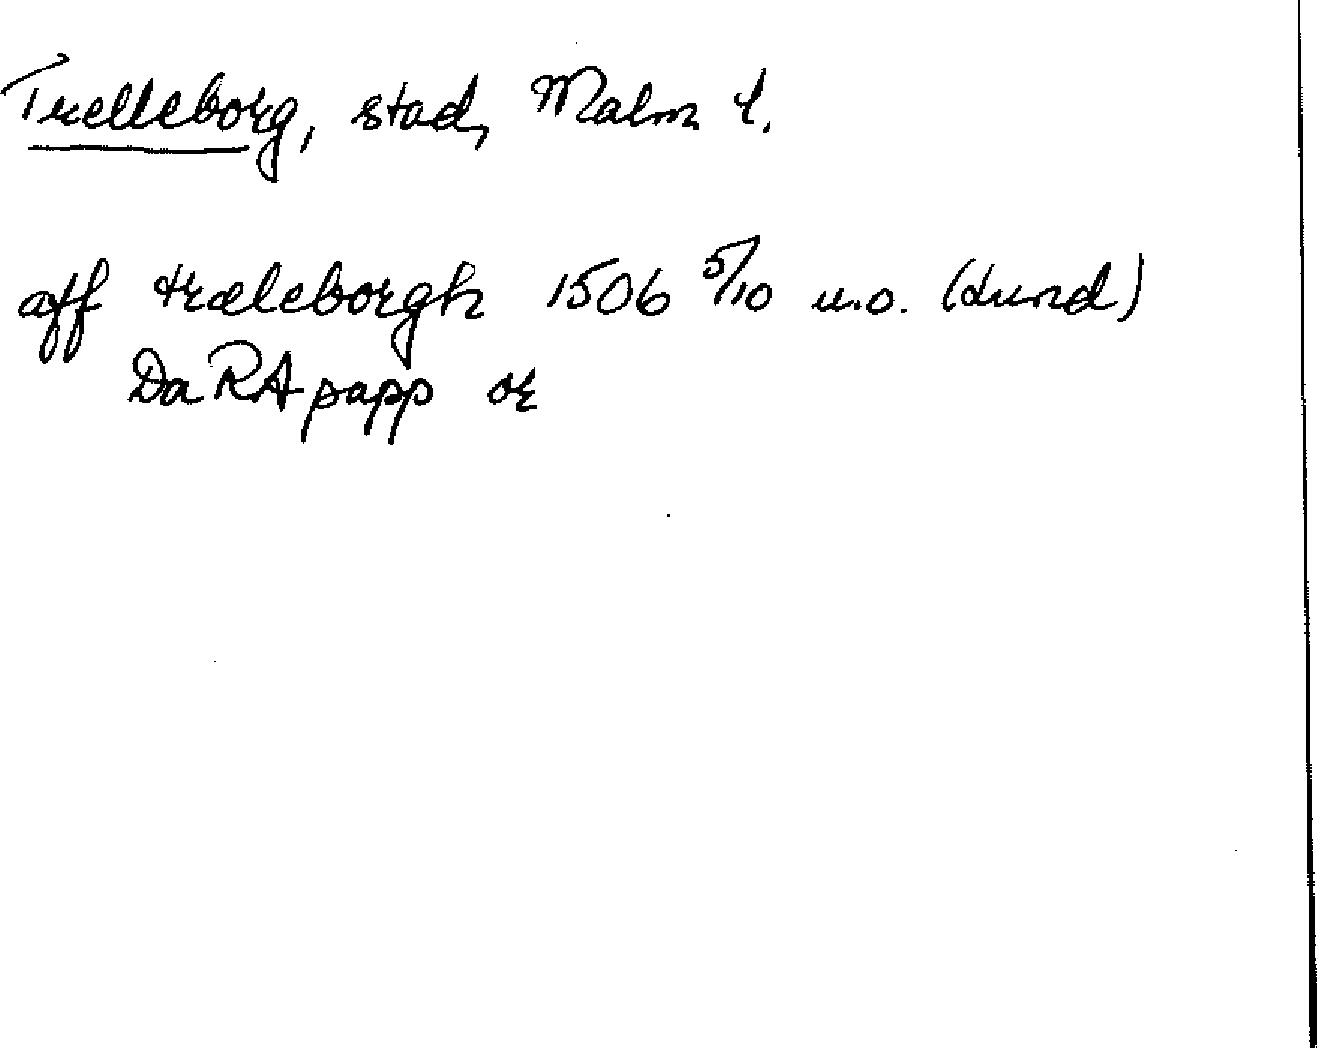 Trelleborg, stad, Malm l.
aff træleborgh 1506 5/10 u.o. (Lund)
DaRA papp or